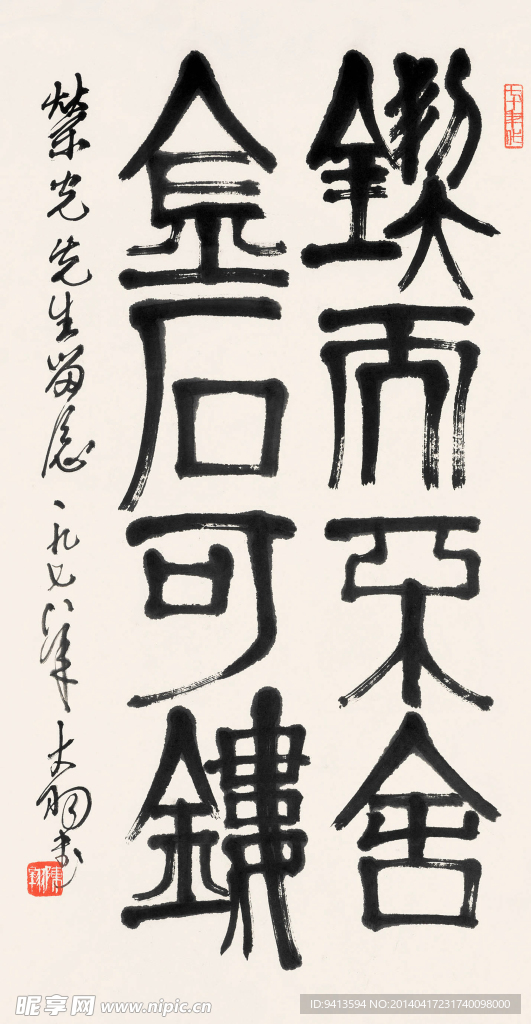 锲而不舍
金石可鏤
榮光先生留念 一九七八年 大羽書
昵享网 www.nipic.cn
ID:9413594 NO:20140417231740098000